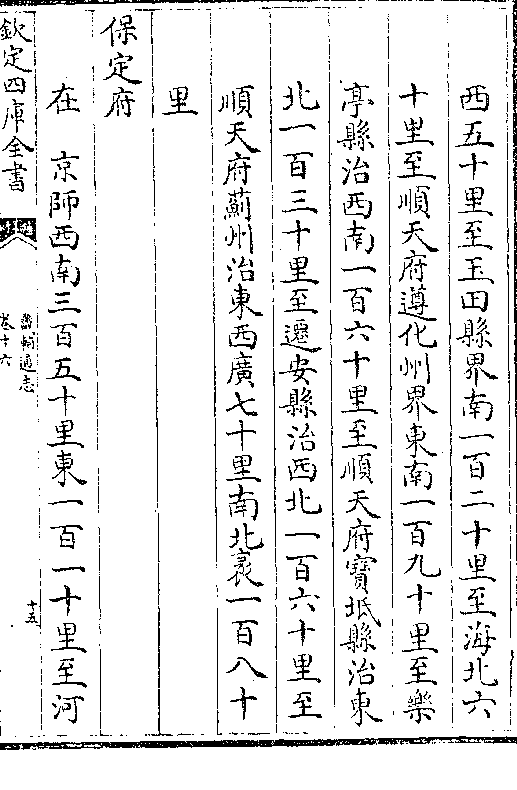 西五十里至玉田縣界南一百二十里至海北六
十里至順天府遵化州界東南一百九十里至樂
亭縣治西南一百六十里至順天府寶坻縣治東
北一百三十里至遷安縣治西北一百六十里至
順天府薊州治東西廣七十里南北袤一百八十
里
保定府
在 京師西南三百五十里東一百一十里至河
欽定四庫全書
畿輔通志
卷十六
十五